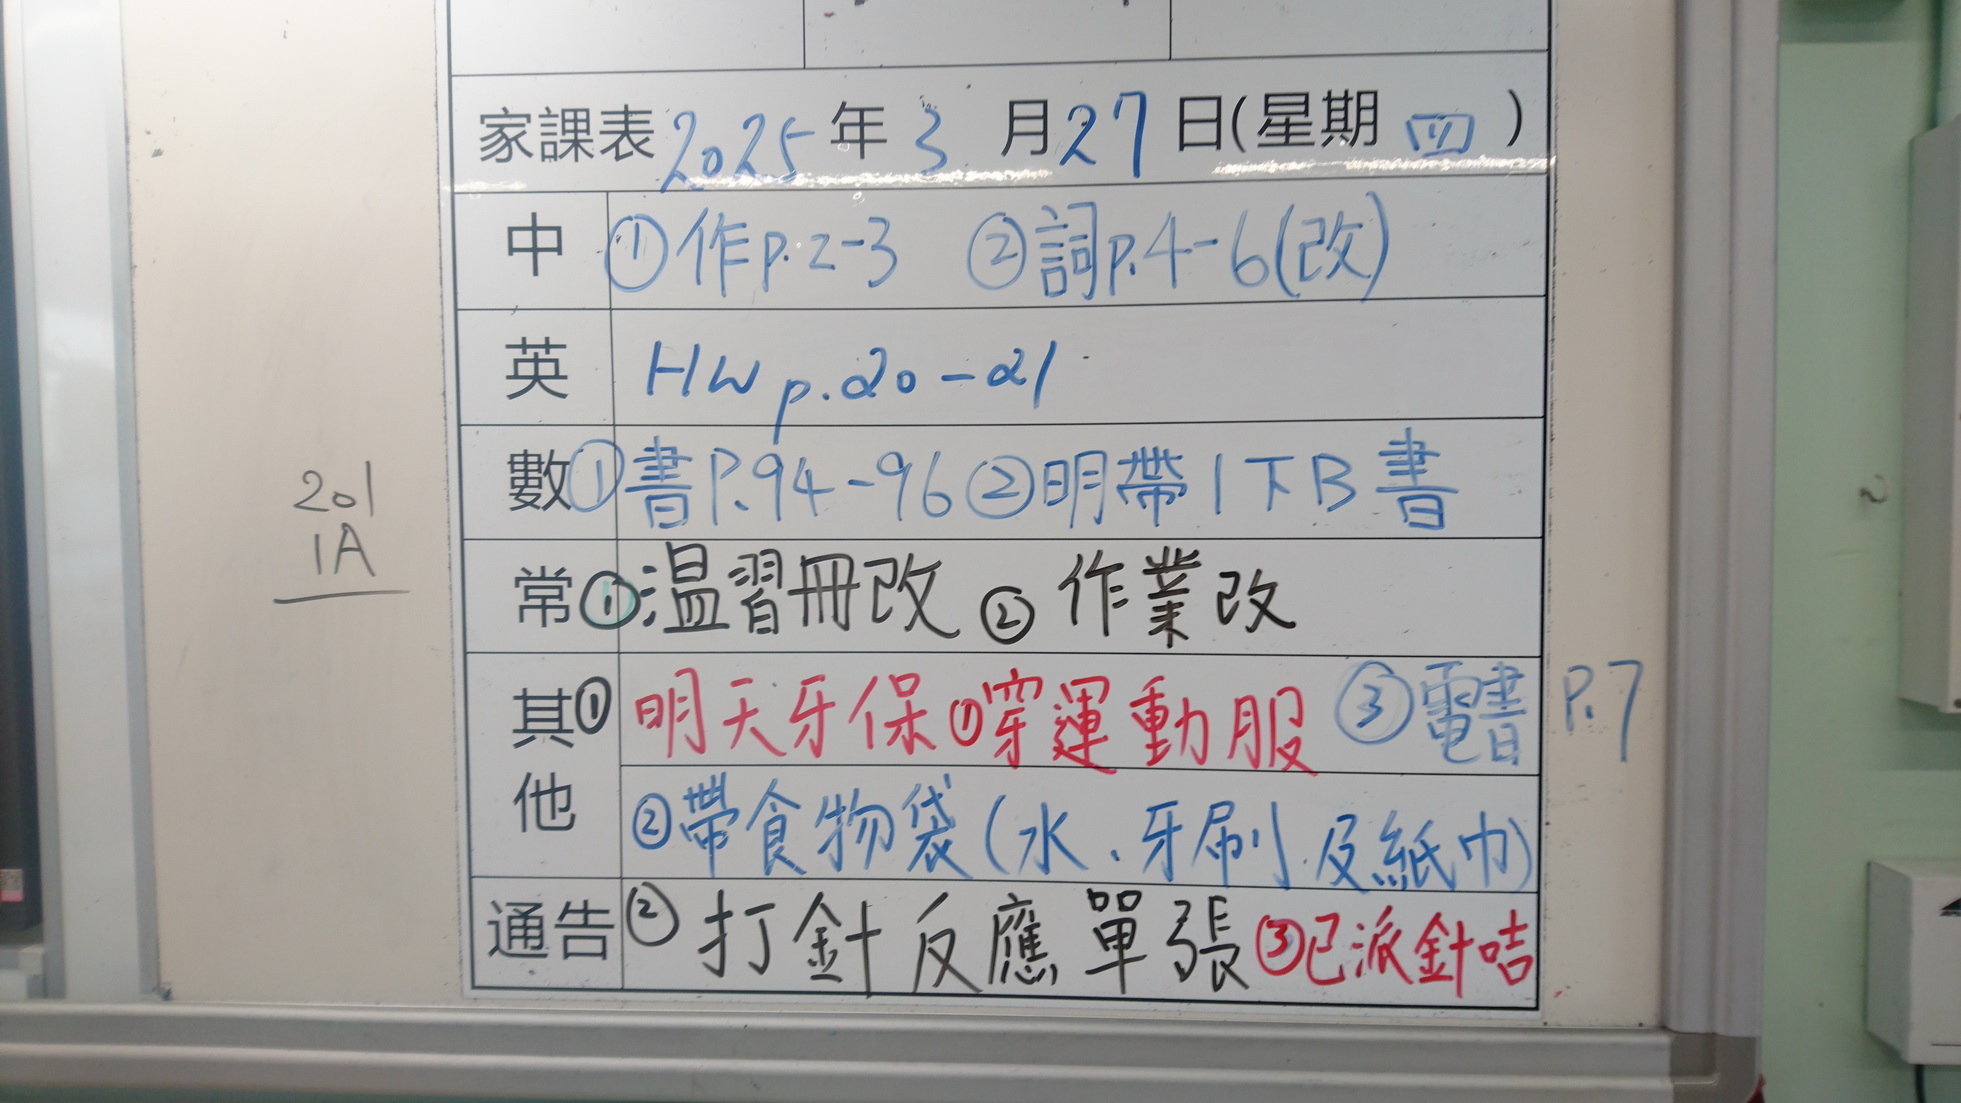 家課表 2025年3月27日(星期四)
中 ①作p.2-3 ②詞p.4-6(改)
英 HW p.20-21
數 ①書P.94-96 ②明帶1下B書
201
1A
常 ①温習冊改 ②作業改
其他 ① 明天牙保①穿運動服 ③電書 P.7
②帶食物袋(水、牙刷及紙巾)
通告 ②打針反應單張 ③已派針咭